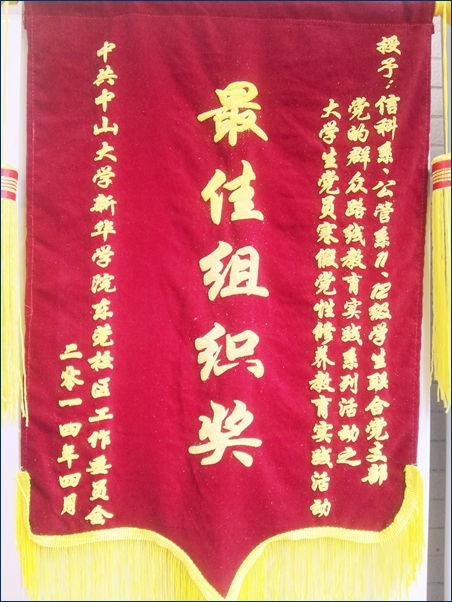 授予：信科系、公管系11、12级学生联合党支部
党的群众路线教育实践系列活动之
大学生党员寒假党性修养教育实践活动
最佳组织奖
中共中山大学新华学院东莞校区工作委员会
二零一四年四月